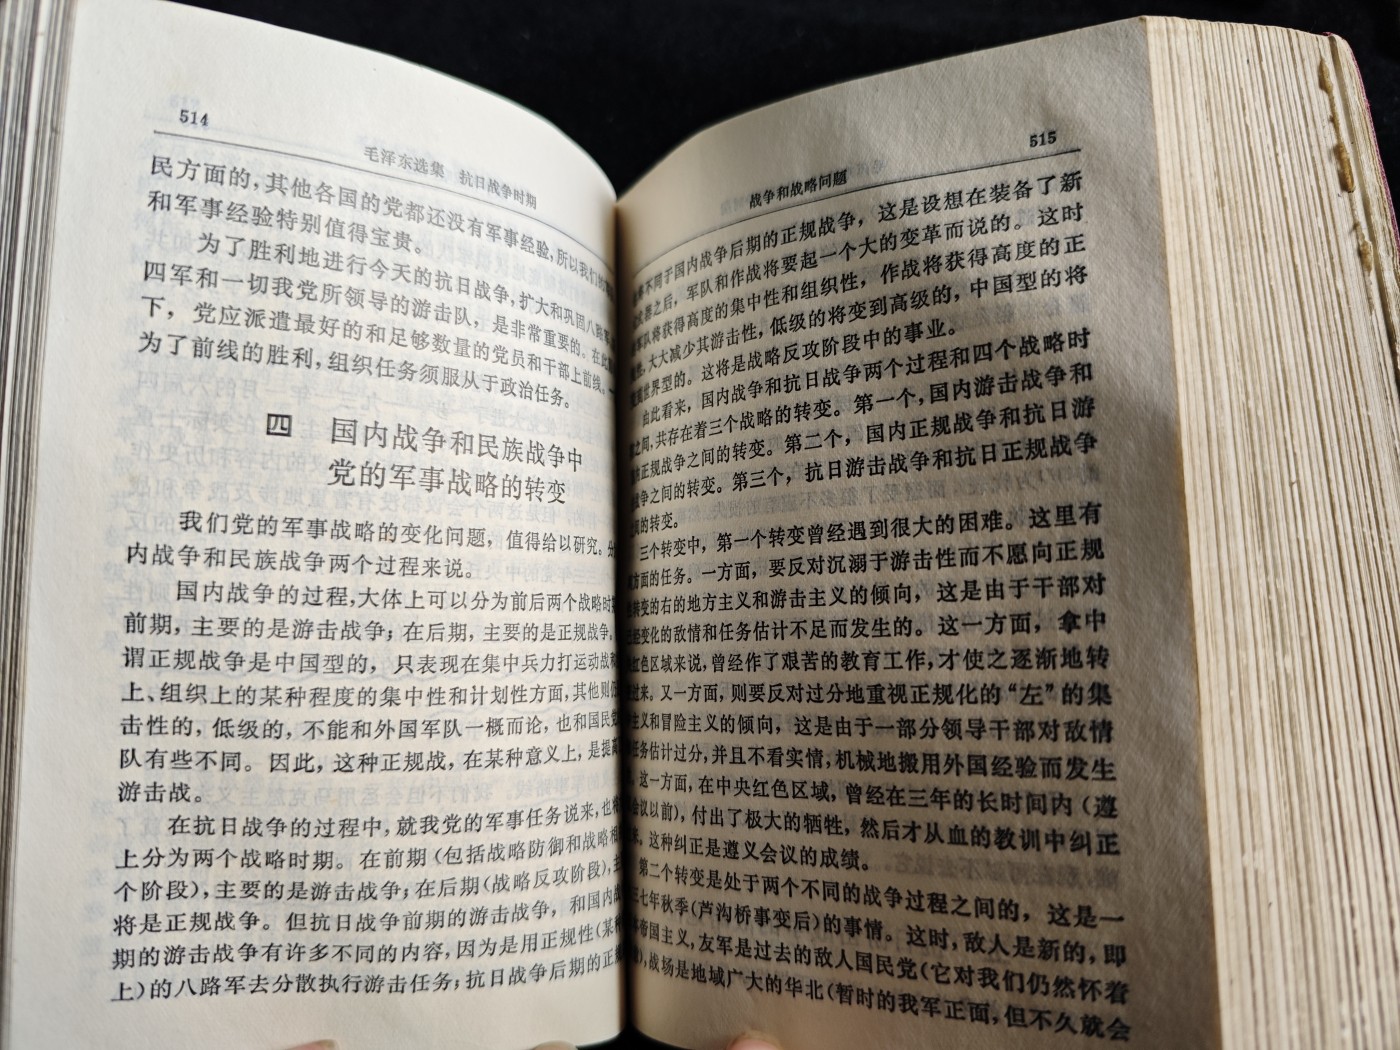 514
毛泽东选集　抗日战争时期
民方面的，其他各国的党都还没有军事经验，所以我们的
和军事经验特别值得宝贵。
为了胜利地进行今天的抗日战争，扩大和巩固八路军
四军和一切我党所领导的游击队，是非常重要的。在此
下，党应派遣最好的和足够数量的党员和干部上前线。一
为了前线的胜利，组织任务须服从于政治任务。
四　国内战争和民族战争中
党的军事战略的转变
我们党的军事战略的变化问题，值得给以研究。分
内战争和民族战争两个过程来说。
国内战争的过程，大体上可以分为前后两个战略时
前期，主要的是游击战争；在后期，主要的是正规战争。
谓正规战争是中国型的，只表现在集中兵力打运动战
上、组织上的某种程度的集中性和计划性方面，其他则
击性的，低级的，不能和外国军队一概而论，也和国民党
队有些不同。因此，这种正规战，在某种意义上，是提高
游击战。
在抗日战争的过程中，就我党的军事任务说来，也将
上分为两个战略时期。在前期（包括战略防御和战略相
个阶段），主要的是游击战争；在后期（战略反攻阶段），主
将是正规战争。但抗日战争前期的游击战争，和国内战
期的游击战争有许多不同的内容，因为是用正规性（某种
上）的八路军去分散执行游击任务；抗日战争后期的正规
515
战争和战略问题
不同于国内战争后期的正规战争，这是设想在装备了新
之后，军队和作战将要起一个大的变革而说的。这时
军队将获得高度的集中性和组织性，作战将获得高度的正
大大减少其游击性，低级的将变到高级的，中国型的将
世界型的。这将是战略反攻阶段中的事业。
由此看来，国内战争和抗日战争两个过程和四个战略时
之间，共存在着三个战略的转变。第一个，国内游击战争和
正规战争之间的转变。第二个，国内正规战争和抗日游
战争之间的转变。第三个，抗日游击战争和抗日正规战争
的转变。
三个转变中，第一个转变曾经遇到很大的困难。这里有
方面的任务。一方面，要反对沉溺于游击性而不愿向正规
转变的右的地方主义和游击主义的倾向，这是由于干部对
经变化的敌情和任务估计不足而发生的。这一方面，拿中
红色区域来说，曾经作了艰苦的教育工作，才使之逐渐地转
过来。又一方面，则要反对过分地重视正规化的“左”的集
主义和冒险主义的倾向，这是由于一部分领导干部对敌情
任务估计过分，并且不看实情，机械地搬用外国经验而发生
。这一方面，在中央红色区域，曾经在三年的长时间内（遵
会议以前），付出了极大的牺牲，然后才从血的教训中纠正
来。这种纠正是遵义会议的成绩。
第二个转变是处于两个不同的战争过程之间的，这是一
三七年秋季（芦沟桥事变后）的事情。这时，敌人是新的，即
帝国主义，友军是过去的敌人国民党（它对我们仍然怀着
），战场是地域广大的华北（暂时的我军正面，但不久就会